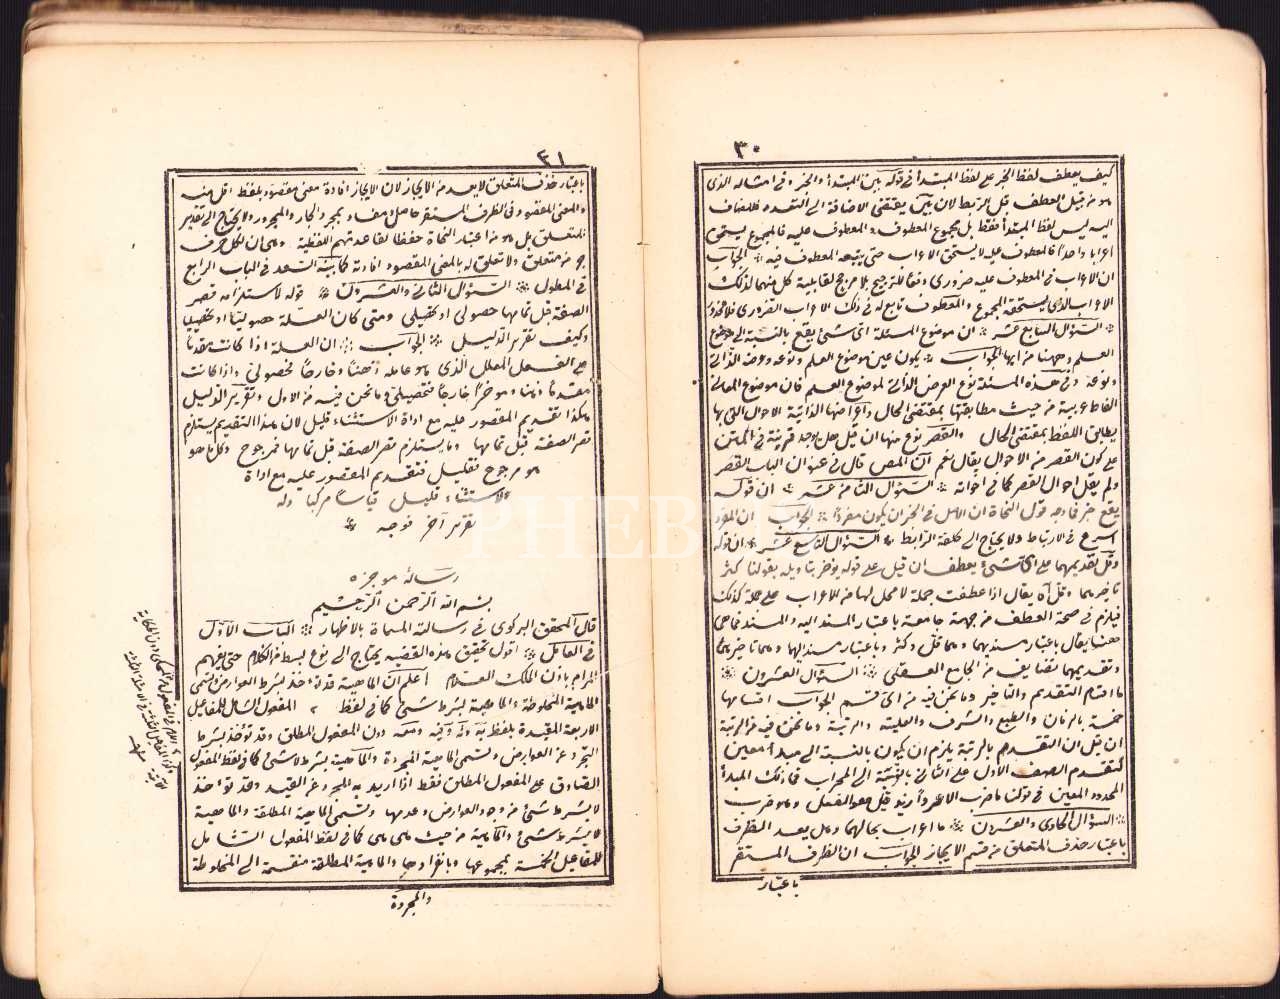 ٣٠
كيف يعطف لفظ الخبر على لفظ المبتدأ في قوله بين المبتدأ والخبر وفي امثاله الذى
هو من قبيل العطف قبل الربط لان بين يقتضى الاضافة الى المتعدد فالمضاف
اليه ليس لفظ المبتدأ فقط بل مجموع المعطوف والمعطوف عليه فالمجموع يستحق
اعرابا واحدا فالمعطوف عليه لا يستحق الاعراب حتى يتبعه المعطوف فيه الجواب
ان الاعراب في المعطوف عليه ضرورى دفعا للترجيح بلا مرجح لقابلية كل منهما لذلك
الاعراب الذى يستحقه المجموع والمعطوف تابع له في ذلك الاعراب الضرورى فلا محذور
السؤال السابع عشر ان موضوع المسئلة اى شئ يقع بالنسبة الى موضوع
العلم وههنا من ايها الجواب يكون عين موضوع العلم ونوعه وعرضه الذاتى
ونوعه وفي هذه المسئلة نوع العرض الذاتى لموضوع العلم فان موضوع المعانى
الفاظ عربية من حيث مطابقتها بمقتضى الحال واعراضها الذاتية الاحوال التى بها
يطابق اللفظ بمقتضى الحال والقصر نوع منها ان قيل هل يوجد قرينة في المتن
على كون القصر من الاحوال يقال نعم ان المص قال في عنوان الباب القصر
ولم يقل احوال القصر كما في اخواته السؤال الثامن عشر ان قوله
يقع خبر فما وجه قول النحاة ان الاصل في الخبر ان يكون مفردا الجواب ان المفرد
اسرع في الارتباط ولا يحتاج الى كلفة الرابط السؤال التاسع عشر ان قوله
وقل تقديمهما على اى شئ يعطف ان قيل على قوله يؤخر بتأويله بقولنا كثر
تأخيرهما وقل آه يقال اذا عطفت جملة لا محل لها من الاعراب على جملة كذلك
فيلزم في صحة العطف من جهة جامعة باعتبار المسند اليه والمسند فما هى
ههنا يقال باعتبار مسنديهما وهما قل وكثر وباعتبار مسند اليهما وهما تأخيرهما
وتقديمهما تضايف من الجامع العقلى السؤال العشرون
ما اقسام التقديم والتأخير وما نحن فيه من اى قسم الجواب اقسامها
خمسة بالزمان والطبع والشرف والعلية والرتبة وما نحن فيه من الرتبة
ان قيل ان التقدم بالرتبة يلزم ان يكون بالنسبة الى مبدأ معين
كتقدم الصف الاول على الثانى بالنسبة الى المحراب فما ذلك المبدأ
المحدود المعين في قولنا ما ضرب الا عمروا زيد قيل هو الفعل وهو ضرب
السؤال الحادى والعشرون ما اعراب بحالهما وهل يعد الظرف
باعتبار حذف المتعلق من قسم الايجاز الجواب ان الظرف المستقر
باعتبار
٣١
باعتبار حذف المتعلق لا يعد من الايجاز لان الايجاز افادة معنى مقصود بلفظ اقل منه
والمعنى المقصود في الظرف المستقر حاصل مفاد بمجرد الجار والمجرور ولا يحتاج الى تقدير
المتعلق بل هو من اعتبار النحاة حفظا لقاعدتهم اللفظية وهى ان لكل حرف
جر من متعلق ولا تعلق له بالمعنى المقصود افادته كما بينه السعد في الباب الرابع
في المطول السؤال الثانى والعشرون قوله لاستلزامه قصر
الصفة قبل تمامها حصولى او تحصيلى ومتى كان العلة حصوليا او تحصيليا
وكيف تقرير الدليل الجواب ان العلة اذا كانت مقدما
على الفعل المعلل الذى هو عامله ذهنا وخارجا فحصولى واذا كانت
مقدما ذهنا ومؤخرا خارجا فتحصيلى وما نحن فيه من الاول وتقرير الدليل
هكذا تقديم المقصور عليه مع اداة الاستثناء قليل لان هذا التقديم يستلزم
قصر الصفة قبل تمامها وما يستلزم قصر الصفة قبل تمامها فمرجوح وكل ما هو
هو مرجوح فقليل فتقديم المقصور عليه مع اداة
الاستثناء قليل قياسا مركبا وله
تقرير آخر فوجه
رسالة موجزه
بسم الله الرحمن الرحيم
قال المحقق البركوى في رسالته المسماة بالاظهار الباب الاول
في العامل اقول تحقيق هذه القضيه يحتاج الى نوع بسط من الكلام حتى يفهم
المرام باذن الملك العلام اعلم ان الماهية قد تؤخذ بشرط العوارض وتسمى
الماهية المخلوطة والماهية بشرط شئ كما في لفظ المفعول الشامل للمفاعيل
الاربعة المقيدة بلفظ به وله وفيه ومعه دون المفعول المطلق وقد تؤخذ بشرط
التجرد عن العوارض وتسمى الماهية المجردة والماهية بشرط لا شئ كما في لفظ المفعول
الصادق على المفعول المطلق فقط اذا اريد به المجرد عن القيد وقد تؤخذ
لا بشرط شئ من وجود العوارض وعدمها وتسمى الماهية المطلقة والماهية
لا بشرط شئ والماهية من حيث هى هى كما في لفظ المفعول الشامل
للمفاعيل الخمسة بمجموعها وبانفرادها والماهية المطلقة منقسمة الى المخلوطة
والمجردة